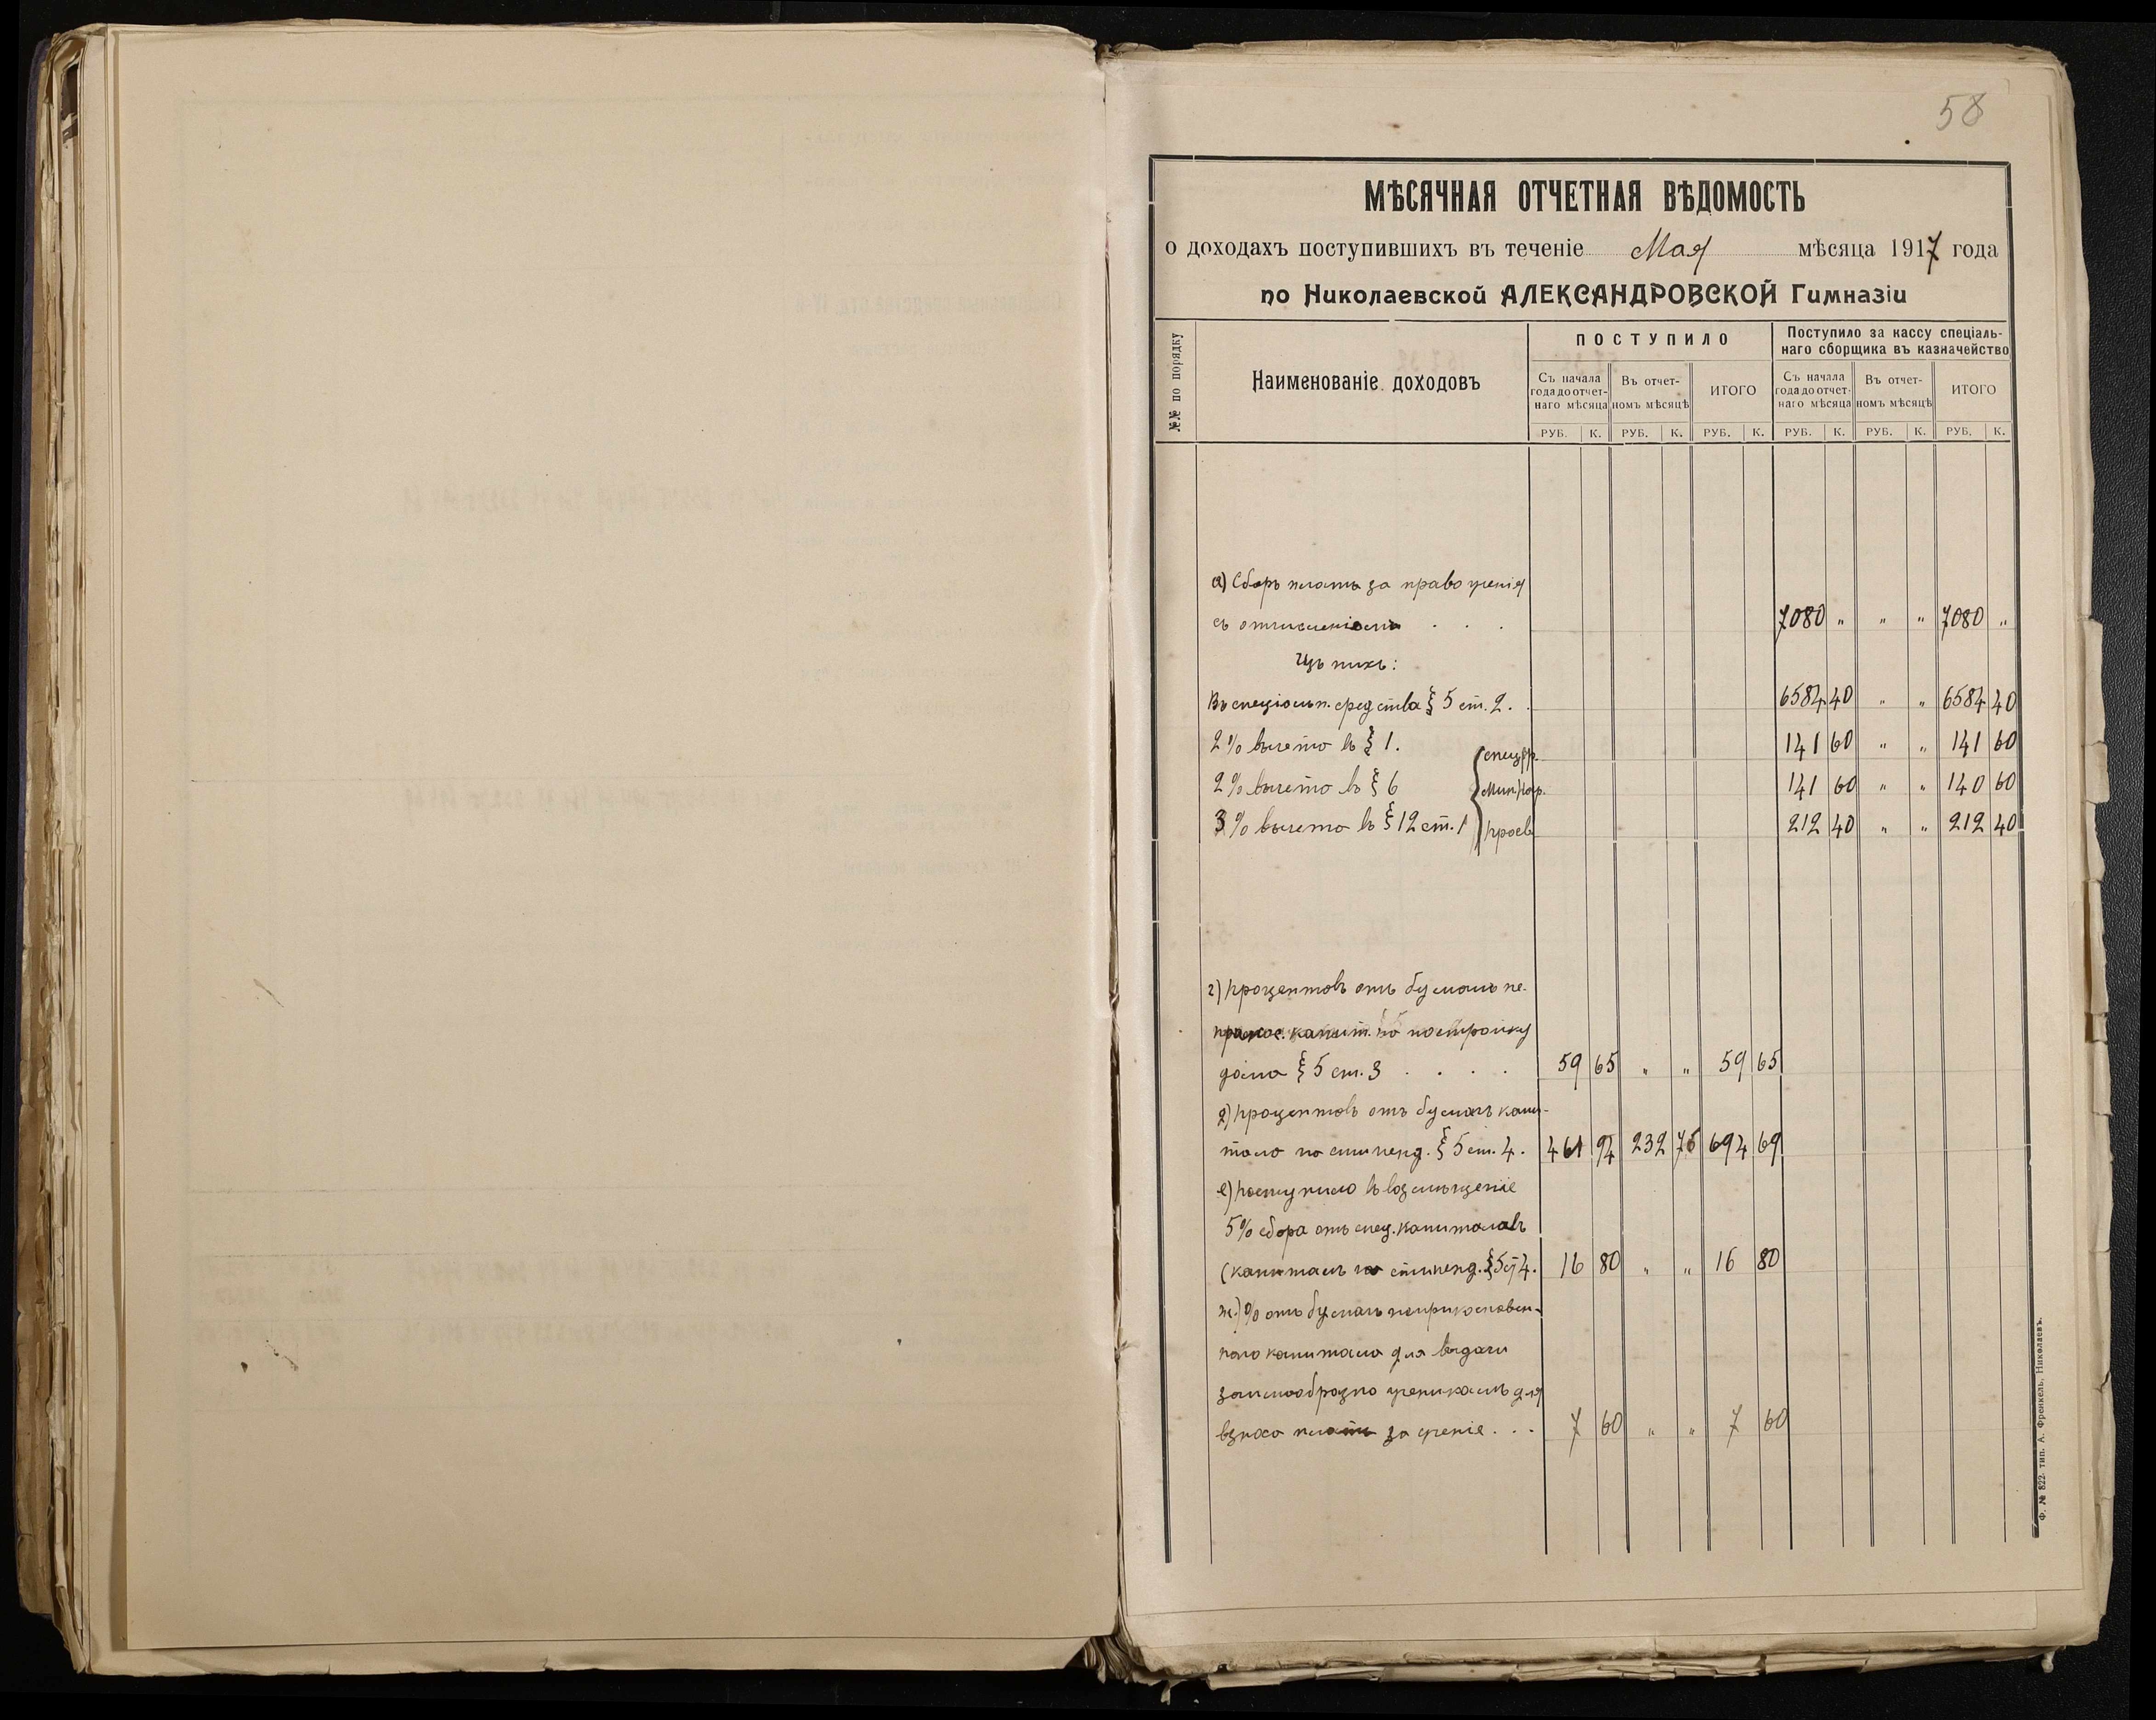 58
МѢСЯЧНАЯ ОТЧЕТНАЯ ВѢДОМОСТЬ
о доходахъ поступившихъ въ теченіе Мая мѣсяца 1917 года
по Николаевской АЛЕКСАНДРОВСКОЙ Гимназіи
№№ по порядку
Наименованіе доходовъ
ПОСТУПИЛО
Поступило за кассу спеціаль-
наго сборщика въ казначейство
Съ начала года до отчет- наго мѣсяца Въ отчет- номъ мѣсяцѣ ИТОГО Съ начала года до отчет- наго мѣсяца Въ отчет- номъ мѣсяцѣ ИТОГО
РУБ. К. РУБ. К. РУБ. К. РУБ. К. РУБ. К. РУБ. К.
а) Сборъ платы за право ученія
съ отчисленіемъ . . . 7080 „ „ „ 7080 „
Изъ нихъ:
Въ спеціальн. средства § 5 ст. 2. 6584 40 „ „ 6584 40
2% вычета въ § 1. 141 60 „ „ 141 60
2% вычета въ § 6 141 60 „ „ 140 60
3% вычета въ § 12 ст. 1 212 40 „ „ 212 40
Мин. Нар.
Просв.
г) процентовъ отъ бумагъ не-
прикос. капит. на постройку
дома § 5 ст. 3 . . . . 59 65 „ „ 59 65
д) процентовъ отъ бумагъ капи-
тала на стипенд. § 5 ст. 4. 461 94 232 75 694 69
е) поступило въ возмѣщеніе
5% сбора отъ спец. капиталовъ
(капиталъ на стипенд. § 5 ст 4. 16 80 „ „ 16 80
ж) % отъ бумагъ неприкосновен-
наго капитала для выдачи
заимообразно ученикамъ для
взноса платы за ученіе . . . 7 60 „ „ 7 60
Ф. № 822. тип. А. Френкель, Николаевъ.